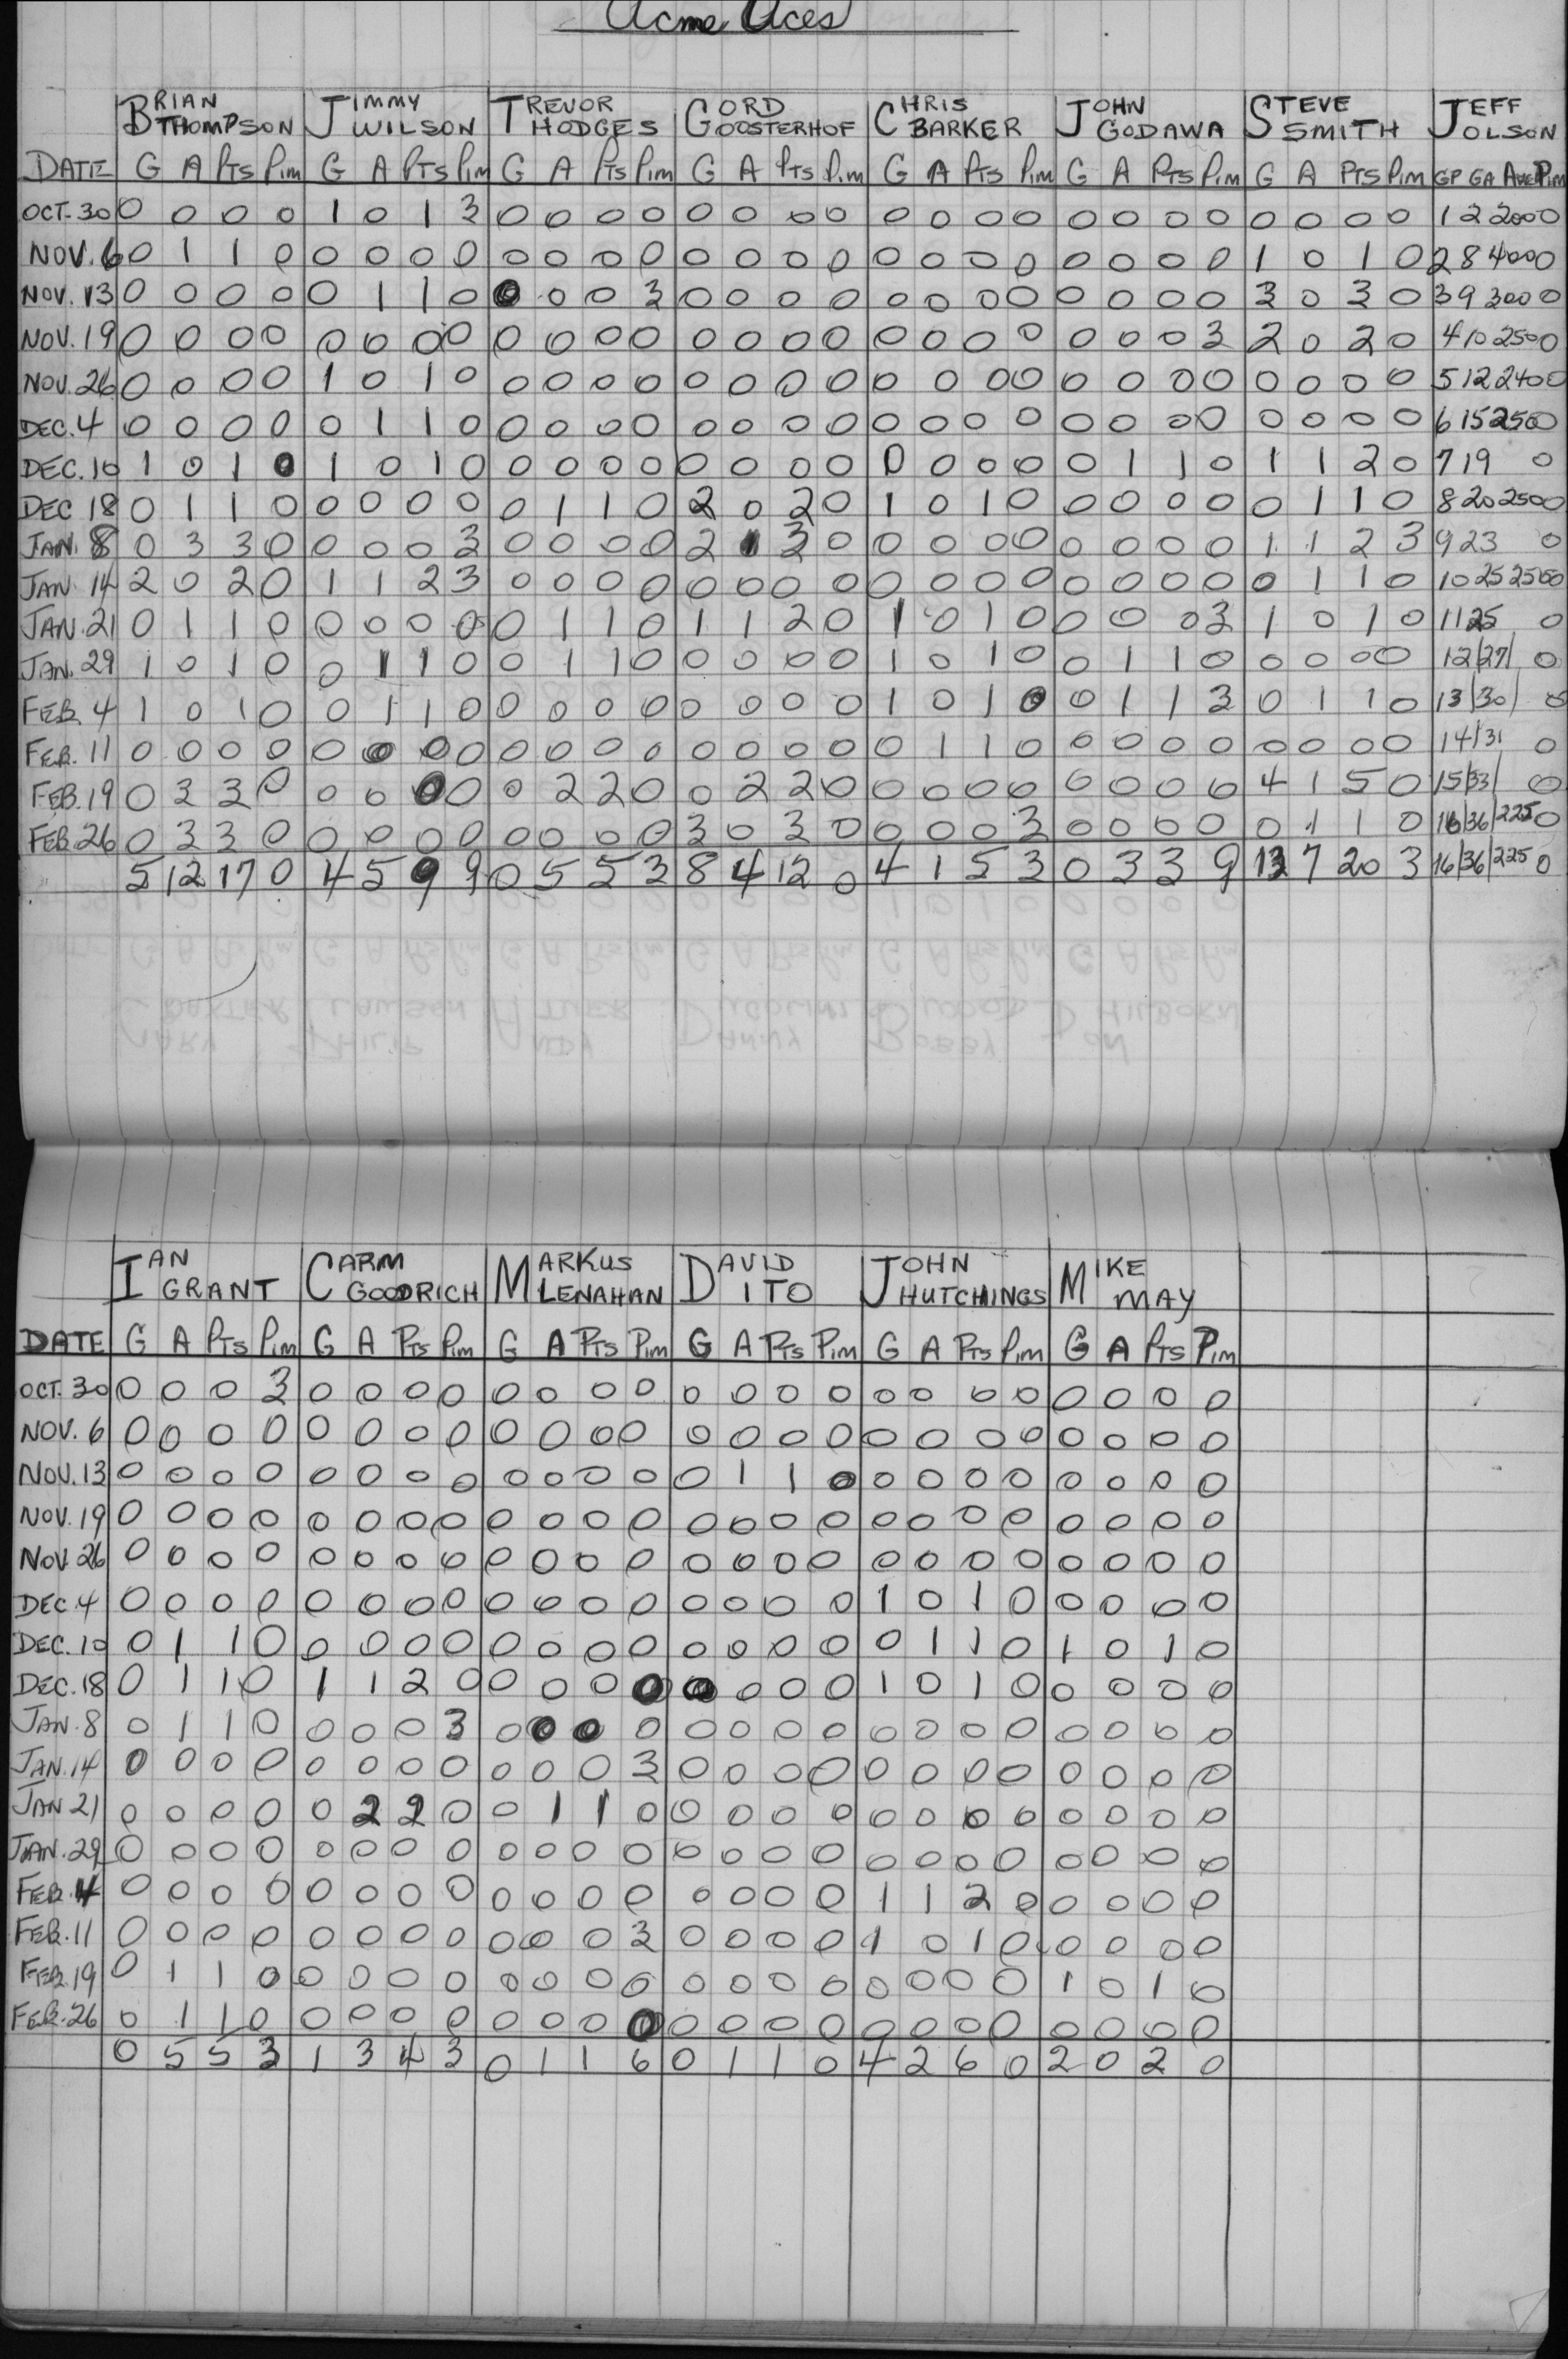 Acme Aces
BRIAN THOMPSON JIMMY WILSON TREVOR HODGES GORD OOSTERHOF CHRIS BARKER JOHN GODAWA STEVE SMITH JEFF OLSON
DATE G A Pts Pim G A Pts Pim G A Pts Pim G A Pts Pim G A Pts Pim G A Pts Pim G A Pts Pim GP GA Ave Pim
OCT. 30 0 0 0 0 1 0 1 3 0 0 0 0 0 0 0 0 0 0 0 0 0 0 0 0 0 0 0 0 1 2 2.00 0
NOV. 6 0 1 1 0 0 0 0 0 0 0 0 0 0 0 0 0 0 0 0 0 0 0 0 0 1 0 1 0 2 8 4.00 0
NOV. 13 0 0 0 0 0 1 1 0 0 0 0 3 0 0 0 0 0 0 0 0 0 0 0 0 3 0 3 0 3 9 3.00 0
NOV. 19 0 0 0 0 0 0 0 0 0 0 0 0 0 0 0 0 0 0 0 0 0 0 0 3 2 0 2 0 4 10 2.50 0
NOV. 26 0 0 0 0 1 0 1 0 0 0 0 0 0 0 0 0 0 0 0 0 0 0 0 0 0 0 0 0 5 12 2.40 0
DEC. 4 0 0 0 0 0 1 1 0 0 0 0 0 0 0 0 0 0 0 0 0 0 0 0 0 0 0 0 0 6 15 2.50 0
DEC. 10 1 0 1 0 1 0 1 0 0 0 0 0 0 0 0 0 0 0 0 0 0 1 1 0 1 1 2 0 7 19 0
DEC 18 0 1 1 0 0 0 0 0 0 1 1 0 2 0 2 0 1 0 1 0 0 0 0 0 0 1 1 0 8 20 2.50 0
JAN. 8 0 3 3 0 0 0 0 3 0 0 0 0 2 1 3 0 0 0 0 0 0 0 0 0 1 1 2 3 9 23 0
JAN. 14 2 0 2 0 1 1 2 3 0 0 0 0 0 0 0 0 0 0 0 0 0 0 0 0 0 1 1 0 10 25 2.50 0
JAN. 21 0 1 1 0 0 0 0 0 0 1 1 0 1 1 2 0 1 0 1 0 0 0 0 3 1 0 1 0 11 25 0
JAN. 29 1 0 1 0 0 1 1 0 0 1 1 0 0 0 0 0 1 0 1 0 0 1 1 0 0 0 0 0 12/27/ 0
FEB. 4 1 0 1 0 0 1 1 0 0 0 0 0 0 0 0 0 1 0 1 0 0 1 1 3 0 1 1 0 13/30/ 0
FEB. 11 0 0 0 0 0 0 0 0 0 0 0 0 0 0 0 0 0 1 1 0 0 0 0 0 0 0 0 0 14/31 0
FEB. 19 0 3 3 0 0 0 0 0 0 2 2 0 0 2 2 0 0 0 0 0 0 0 0 0 4 1 5 0 15/33/ 0
FEB. 26 0 3 3 0 0 0 0 0 0 0 0 0 3 0 3 0 0 0 0 3 0 0 0 0 0 1 1 0 16/36/225 0
5 12 17 0 4 5 9 9 0 5 5 3 8 4 12 0 4 1 5 3 0 3 3 9 13 7 20 3 16/36/225 0
IAN GRANT CARM GOODRICH MARKUS LENAHAN DAVID ITO JOHN HUTCHINGS MIKE MAY
DATE G A Pts Pim G A Pts Pim G A Pts Pim G A Pts Pim G A Pts Pim G A Pts Pim
OCT. 30 0 0 0 3 0 0 0 0 0 0 0 0 0 0 0 0 0 0 0 0 0 0 0 0
NOV. 6 0 0 0 0 0 0 0 0 0 0 0 0 0 0 0 0 0 0 0 0 0 0 0 0
NOV. 13 0 0 0 0 0 0 0 0 0 0 0 0 0 1 1 0 0 0 0 0 0 0 0 0
NOV. 19 0 0 0 0 0 0 0 0 0 0 0 0 0 0 0 0 0 0 0 0 0 0 0 0
NOV. 26 0 0 0 0 0 0 0 0 0 0 0 0 0 0 0 0 0 0 0 0 0 0 0 0
DEC. 4 0 0 0 0 0 0 0 0 0 0 0 0 0 0 0 0 1 0 1 0 0 0 0 0
DEC. 10 0 1 1 0 0 0 0 0 0 0 0 0 0 0 0 0 0 1 1 0 1 0 1 0
DEC. 18 0 1 1 0 1 1 2 0 0 0 0 0 0 0 0 0 1 0 1 0 0 0 0 0
JAN. 8 0 1 1 0 0 0 0 3 0 0 0 0 0 0 0 0 0 0 0 0 0 0 0 0
JAN. 14 0 0 0 0 0 0 0 0 0 0 0 3 0 0 0 0 0 0 0 0 0 0 0 0
JAN 21 0 0 0 0 0 2 2 0 0 1 1 0 0 0 0 0 0 0 0 0 0 0 0 0
JAN. 29 0 0 0 0 0 0 0 0 0 0 0 0 0 0 0 0 0 0 0 0 0 0 0 0
FEB. 4 0 0 0 0 0 0 0 0 0 0 0 0 0 0 0 0 1 1 2 0 0 0 0 0
FEB. 11 0 0 0 0 0 0 0 0 0 0 0 3 0 0 0 0 1 0 1 0 0 0 0 0
FEB. 19 0 1 1 0 0 0 0 0 0 0 0 0 0 0 0 0 0 0 0 0 1 0 1 0
FEB. 26 0 1 1 0 0 0 0 0 0 0 0 0 0 0 0 0 0 0 0 0 0 0 0 0
0 5 5 3 1 3 4 3 0 1 1 6 0 1 1 0 4 2 6 0 2 0 2 0